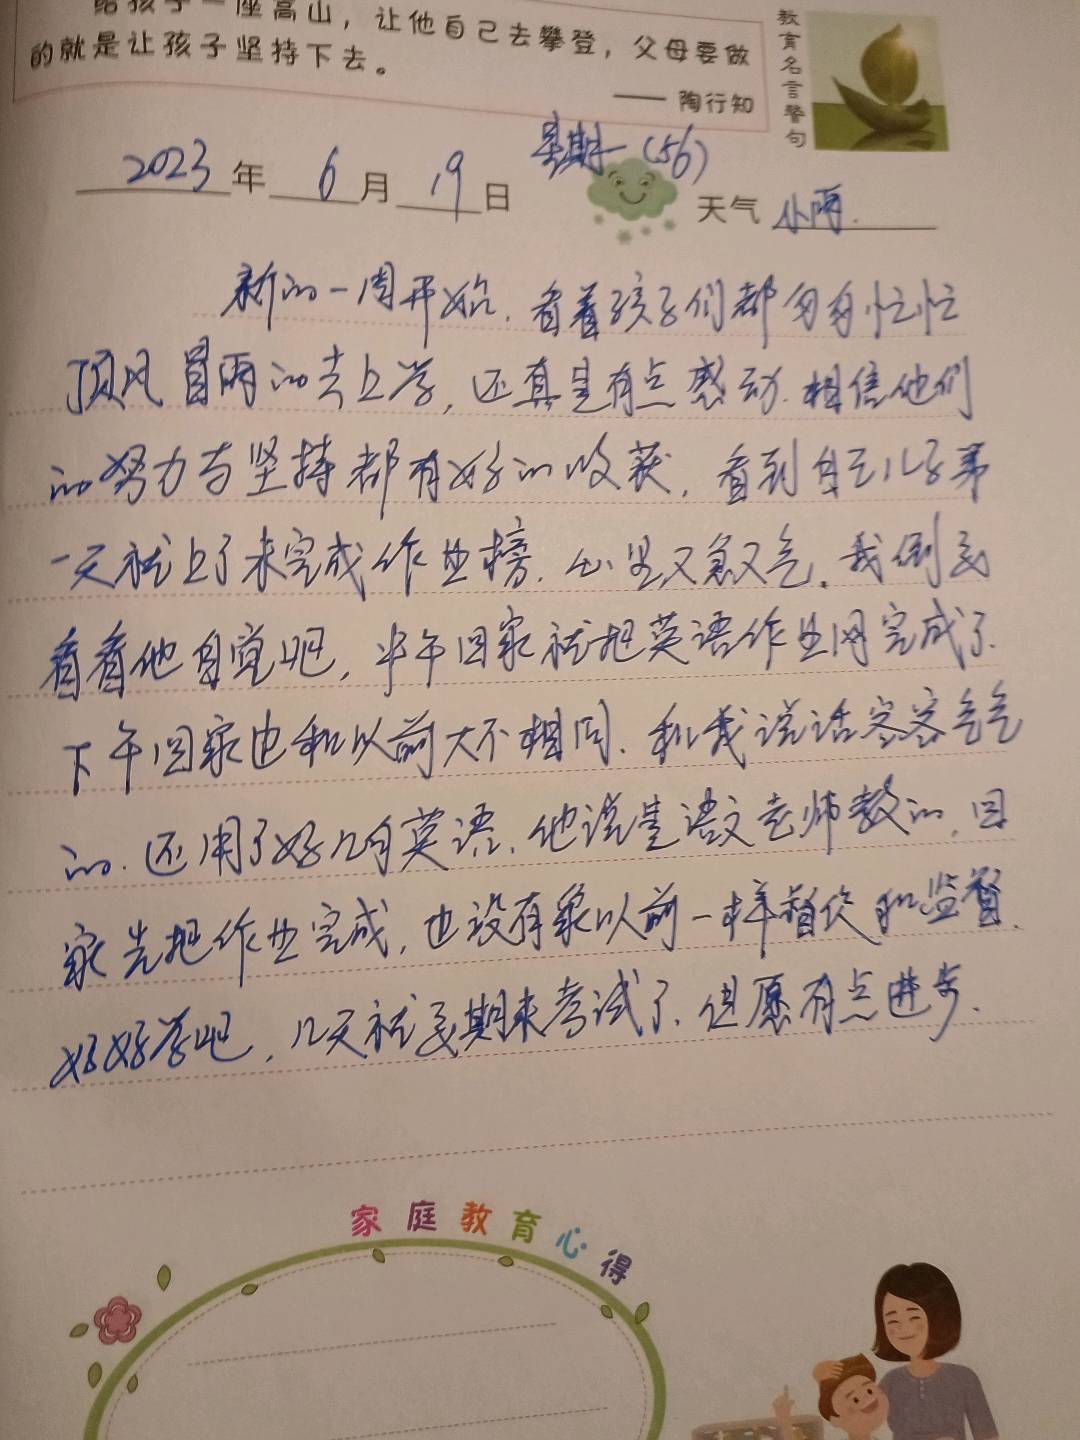 给孩子一座高山，让他自己去攀登，父母要做
的就是让孩子坚持下去。
—— 陶行知
教育名言警句
2023年6月19日 星期一(56) 天气 小雨.
新的一周开始.看着孩子们都匆匆忙忙
顶风冒雨的去上学,还真是有点感动.相信他们
的努力与坚持都有好的收获,看到自己儿子第
一天就上了未完成作业榜.心里又急又气.我倒要
看看他自觉吧,中午回家就把英语作业网完成了.
下午回家也和以前大不相同.和我说话客客气气
的.还用了好几句英语.他说是语文老师教的,回
家先把作业完成,也没有象以前一样督促和监督.
好好学吧,几天就要期末考试了.但愿有点进步.
家庭教育心得